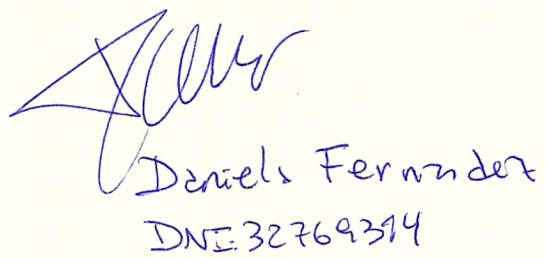 Daniela Fernandez
DNI: 32769314